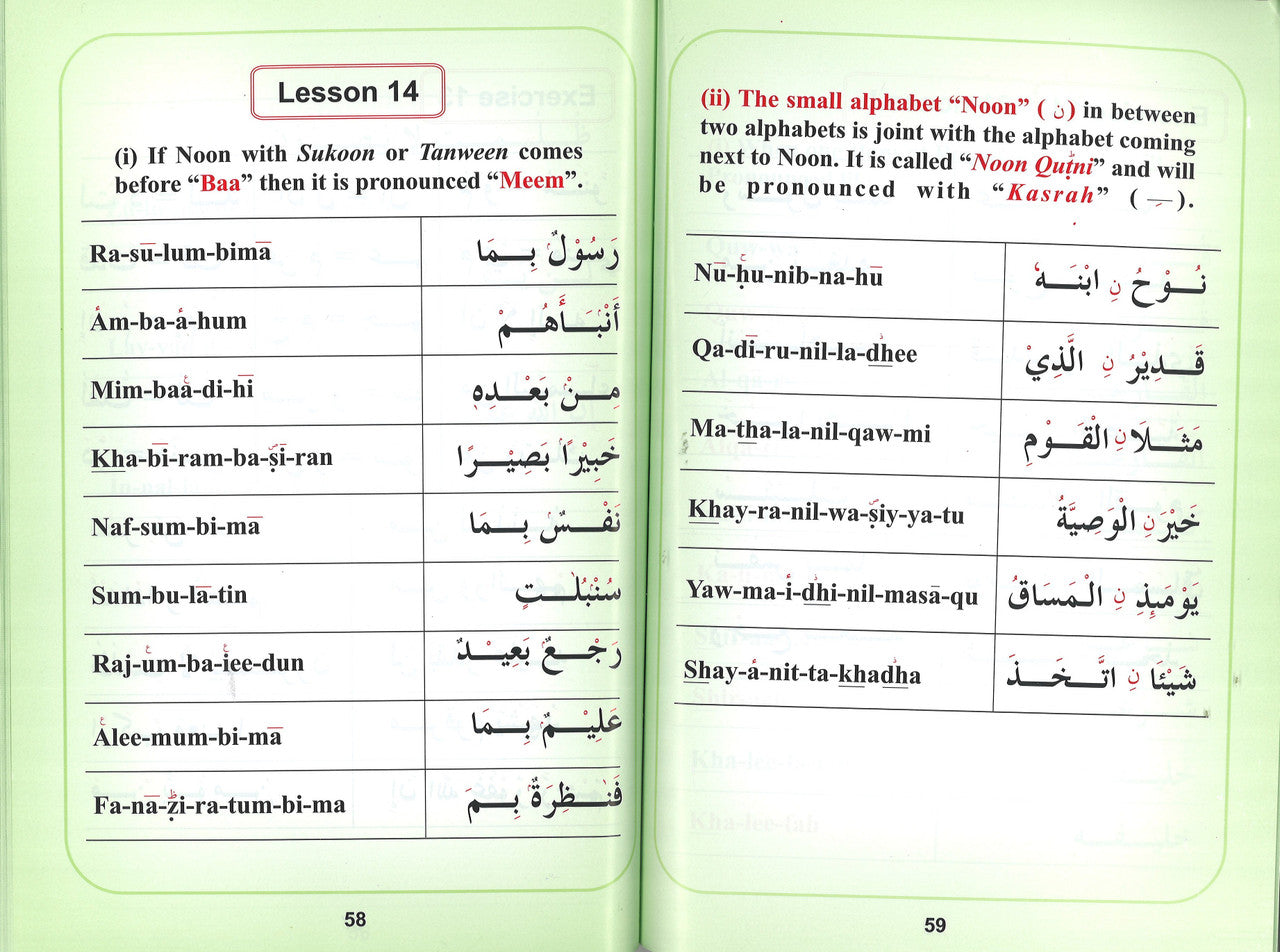 Lesson 14
(i) If Noon with Sukoon or Tanween comes
before “Baa” then it is pronounced “Meem”.
Ra-sū-lum-bimā رَسُوْلٌ بِـمَا
Åm-ba-å-hum أَنْبَـأَهُـمْ
Mim-baå-di-hī مِـنْ بَعْـدِهٖ
Kha-bī-ram-ba-ṣī-ran خَبِيْرًا بَصِيْـرًا
Naf-sum-bi-mā نَفْـسٌ بِـمَا
Sum-bu-lā-tin سُنْبُلٰـتٍ
Raj-um-ba-iee-dun رَجْـعٌ بَعِيْـدٌ
Ålee-mum-bi-mā عَلِيْـمٌ بِـمَا
Fa-nā-ẓi-ra-tum-bi-ma فَنٰـظِرَةٌ بِـمَ
58
(ii) The small alphabet “Noon” ( ن ) in between
two alphabets is joint with the alphabet coming
next to Noon. It is called “Noon Quṭni” and will
be pronounced with “Kasrah” ( ـِ ).
Nū-ḥu-nib-na-hū نُـوْحُ نِ ابْنَـهٗ
Qa-dī-ru-nil-la-dhee قَـدِيْرُ نِ الَّذِيْ
Ma-tha-la-nil-qaw-mi مَثَـلَا نِ الْقَـوْمِ
Khay-ra-nil-wa-ṣiy-ya-tu خَيْرَ نِ الْوَصِيَّةُ
Yaw-ma-i-dhi-nil-masā-qu يَوْمَئِذِ نِ الْـمَسَاقُ
Shay-å-nit-ta-khadha شَيْئَا نِ اتَّـخَـذَ
59